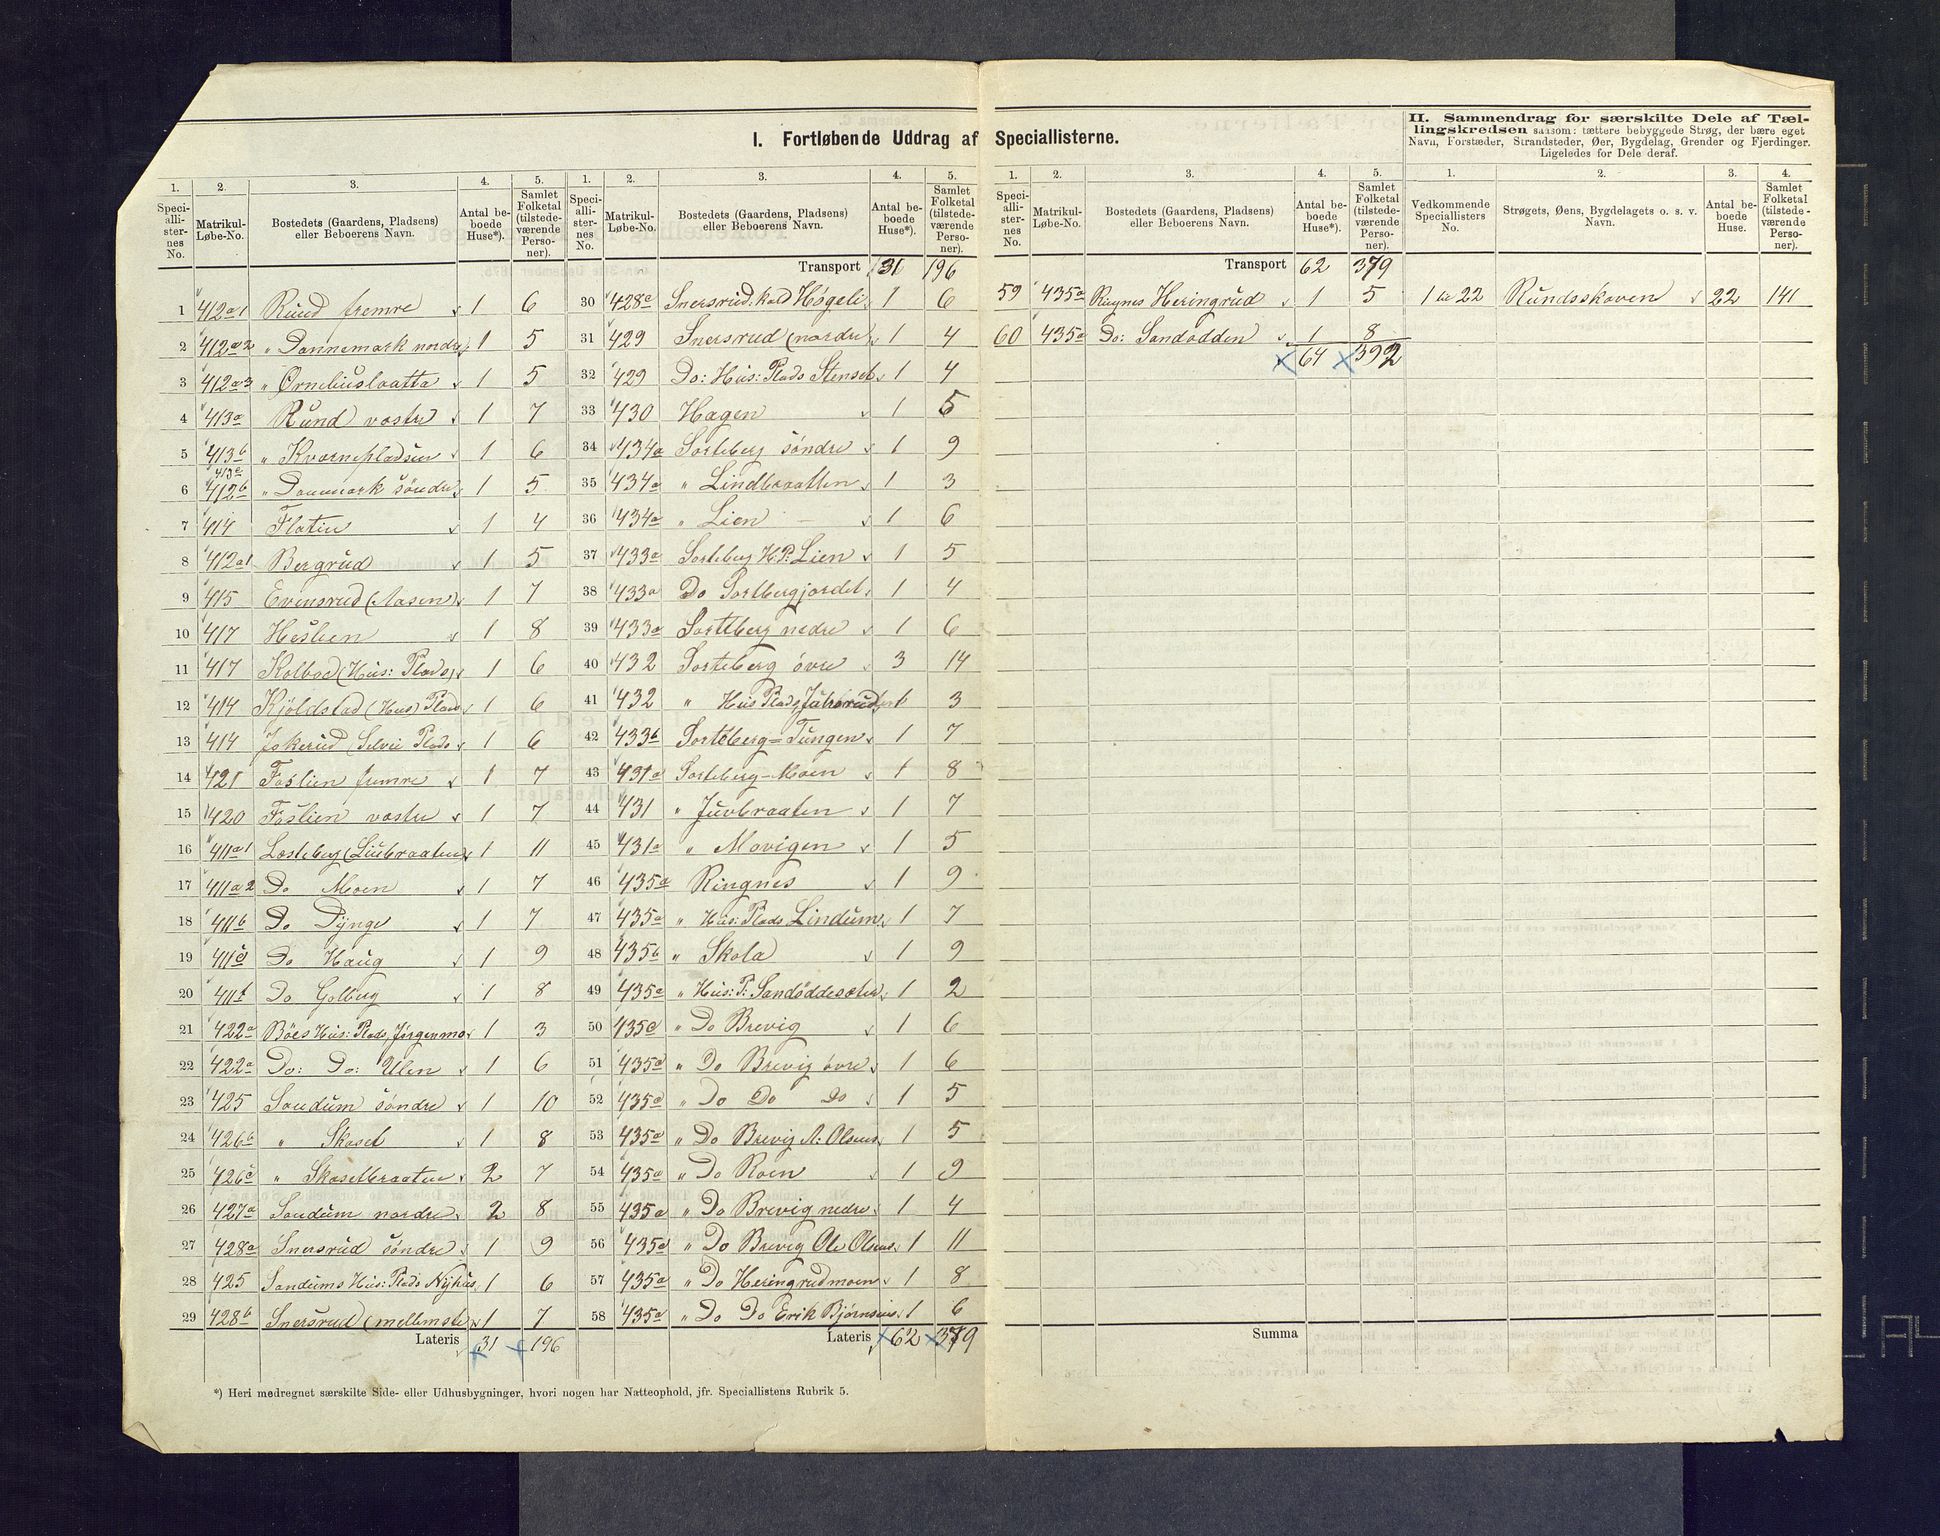 I. Fortløbende Uddrag af Speciallisterne.
II. Sammendrag for særskilte Dele af Tællingskredsen saasom: tættere bebyggede Strøg, der bære eget
Navn, Forstæder, Strandsteder, Øer, Bygdelag, Grender og Fjerdinger.
Ligeledes for Dele deraf.
1. Speciallisternes No. 2. Matrikul-Løbe-No. 3. Bostedets (Gaardens, Pladsens) eller Beboerens Navn. 4. Antal beboede Huse*). 5. Samlet Folketal (tilstedeværende Personer).
1 412a1 Rud fremre 1 6
2 412a2 " Dannemark nordre 1 5
3 412a3 " Ørnehuslaatta 1 5
4 413a Rund vestre 1 7
5 413b " Kvernepladsen 1 6
6 413c 412b " Danmark søndre 1 5
7 414 Flatin 1 4
8 412a1 Bergrud 1 5
9 415 Evensrud (Aasen) 1 7
10 417 Heslien 1 8
11 417 Kolbod (Hus: Plads) 1 6
12 414 Kjöldstad (Hus) Plads 1 6
13 414 Jokerud Selvei Plads 1 6
14 421 Faslien fremre 1 7
15 420 Faslien vestre 1 7
16 411a1 Lesteberg (Liubraaten) 1 11
17 411a2 Do Moen 1 7
18 411b Do Dynge 1 7
19 411c Do Haug 1 9
20 411f Do Golberg 1 8
21 422a Böes Hus: Plads, Jørgenmo 1 3
22 422a Do: Do: Ulen 1 6
23 425 Sandum söndre 1 10
24 426b " Skaset 1 8
25 426c " Skasetbraaten 2 7
26 427a Sandum nordre 2 8
27 428a Snersrud söndre 1 9
28 425 Sandums Hus: Plads Nyhus 1 6
29 428b Snersrud (mellemste) 1 7
Lateris 31 196
1. Speciallisternes No. 2. Matrikul-Løbe-No. 3. Bostedets (Gaardens, Pladsens) eller Beboerens Navn. 4. Antal beboede Huse*). 5. Samlet Folketal (tilstedeværende Personer).
Transport 31 196
30 428c Snersrud: kald Høgeli 1 6
31 429 Snersrud (nordre) 1 4
32 429 Do: Hus: Plads Stenset 1 4
33 430 Hagen 1 5
34 434a Sorteberg söndre 1 9
35 434a " Lindbraatten 1 3
36 434a " Lien 1 6
37 433a Sorteberg H.P: Lien 1 5
38 433a Do Sortbergjordet 1 4
39 433a Sortteberg nedre 1 6
40 432 Sorteberg övre 3 14
41 432 " Hus Plads, 1 3
42 433b Sorteberg=Tungen 1 7
43 431a Sorteberg-Moen 1 8
44 431 " Juvbraaten 1 7
45 431a " Movigen 1 5
46 435a Ringnes 1 9
47 435a " Hus: Plads Lindum 1 7
48 435b " Skola 1 9
49 435a " Hus: P: Sandöddesæter 1 2
50 435a " Do Brevig 1 6
51 435a " Do Brevig övre 1 6
52 435a " Do Do Do 1 5
53 435a " Do Brevig A: Olsens 1 5
54 435a " Do Roen 1 9
55 435a " Do Brevig nedre 1 4
56 435a " Do Brevig Ole Olsens 1 11
57 435a " Do Heringrudmoen 1 8
58 435a " Do Do Erik Bjørnsens 1 6
Lateris 62 379
*) Heri medregnet særskilte Side- eller Udhusbygninger, hvori nogen har Natteophold, jfr. Speciallistens Rubrik 5.
1. Speciallisternes No. 2. Matrikul-Løbe-No. 3. Bostedets (Gaardens, Pladsens) eller Beboerens Navn. 4. Antal beboede Huse*). 5. Samlet Folketal (tilstedeværende Personer).
Transport 62 379
59 435a Ringnes Heringrud 1 5
60 435a Do: Sandödden 1 8
64 392
Summa
1. Vedkommende Speciallisters No. 2. Strøgets, Øens, Bygdelagets o. s. v. Navn. 3. Antal beboede Huse. 4. Samlet Folketal (tilstedeværende Personer).
1 til 22 Rundsskoven 22 141